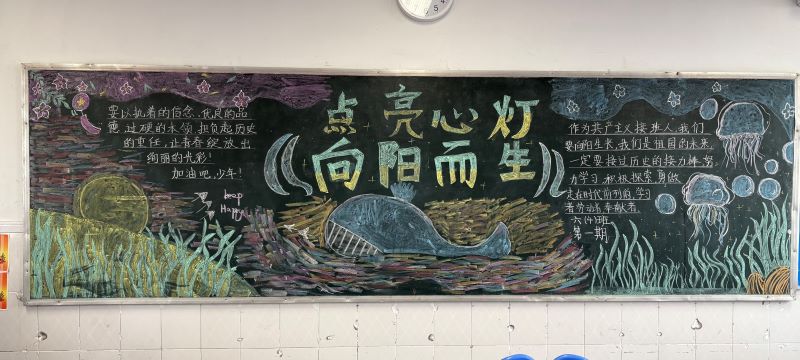 点亮心灯
向阳而生
要以执着的信念、优良的品
德、过硬的本领，担负起历史
的重任，让青春绽放出
绚丽的光彩！
加油吧，少年！
keep
Happy
作为共产主义接班人，我们
要向阳生长，我们是祖国的未来，
一定要接过历史的接力棒，努
力学习，积极探索，勇做
走在时代前列的，学习
者劳动者奉献者
班
第一期